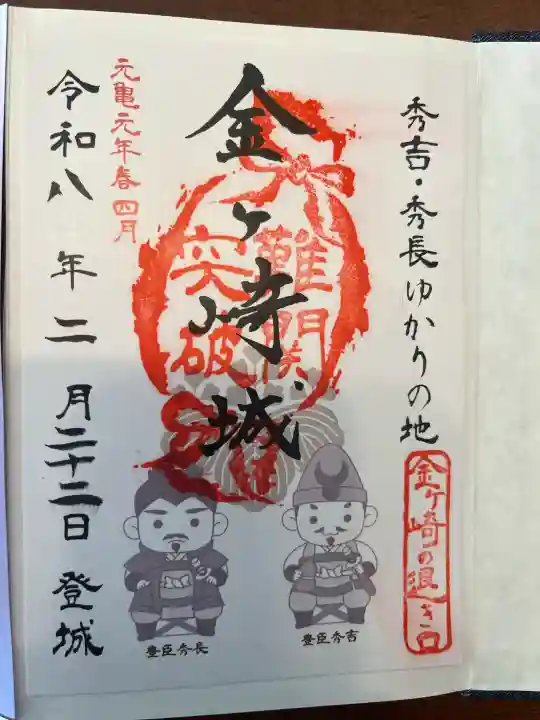 秀吉・秀長ゆかりの地
金ヶ崎の退き口
金ヶ崎城
難関
突破
元亀元年春 四月
令和八年二月二十二日 登城
豊臣秀長
豊臣秀吉